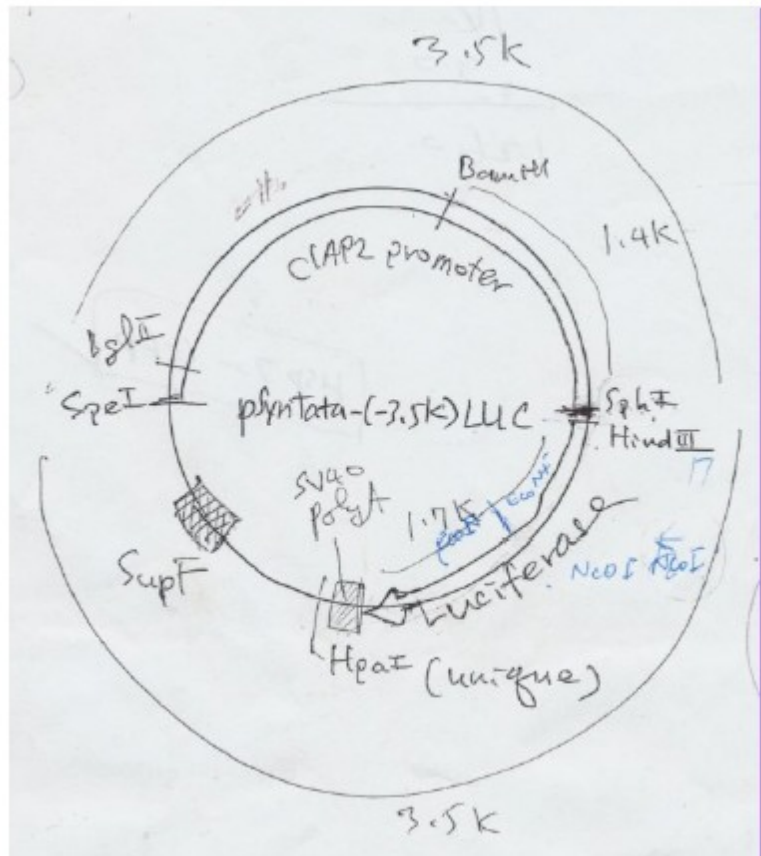 3.5K
BamHI
1.4K
cIAP2 promoter
BglII
SpeI
pSyntata-(-3.5K) LUC
SphI
HindIII
SV40
polyA
1.7K
EcoNI
Luciferase
NcoI
SupF
HpaI (unique)
3.5K